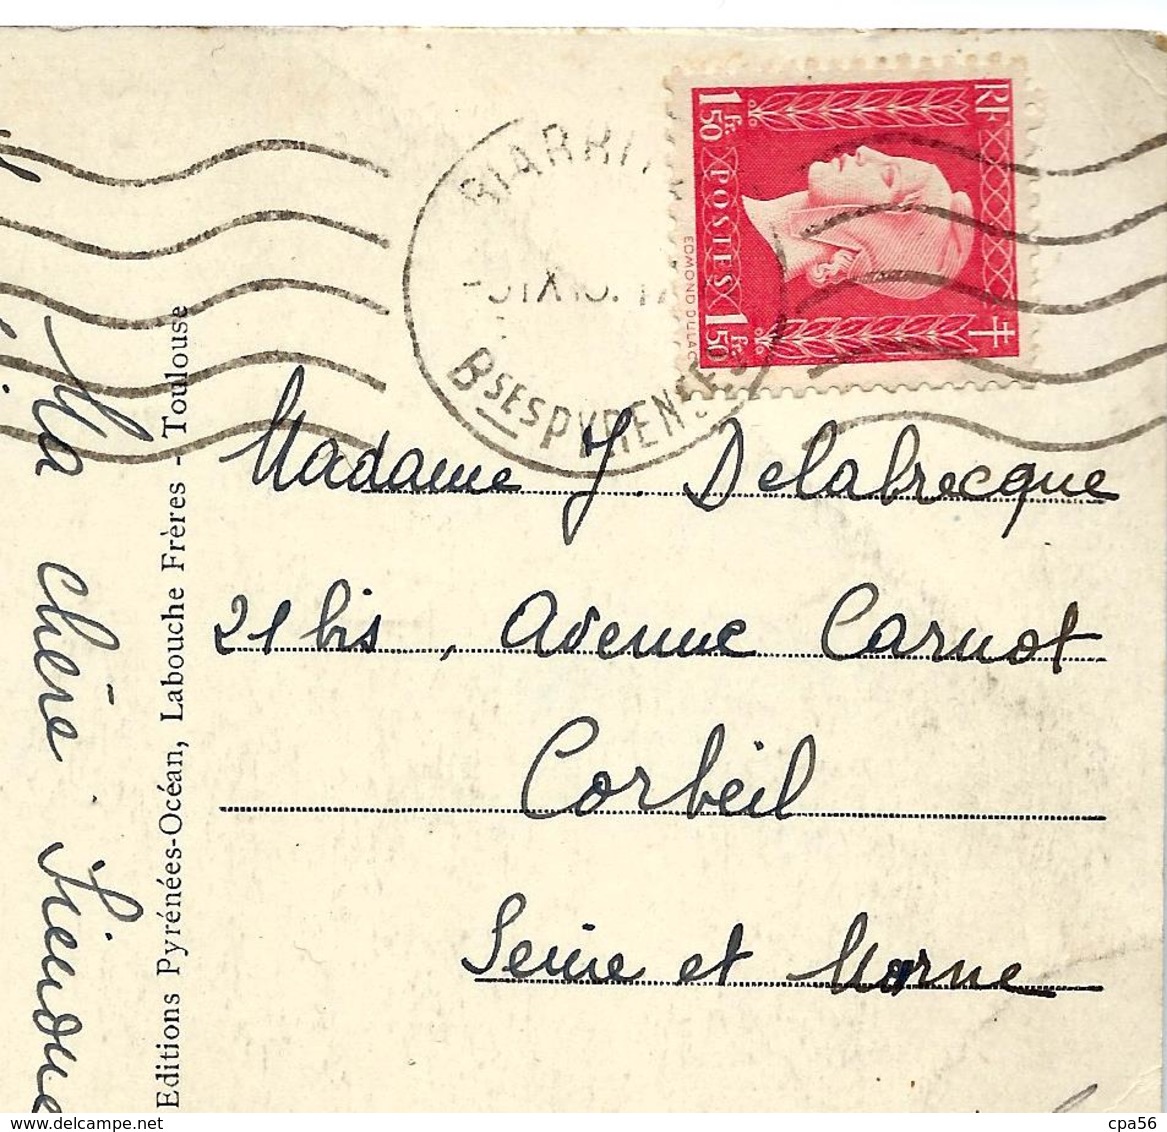 BIARRITZ
Bses PYRENEES
RF
1fr.50 POSTES 1fr.50
EDMOND DULAC
Madame J. Delabrecque
21 bis, Avenue Carnot
Corbeil
Seine et Marne
Editions Pyrénées-Océan, Labouche Frères - Toulouse
Ma chère Simone
www.delcampe.net
cpa56